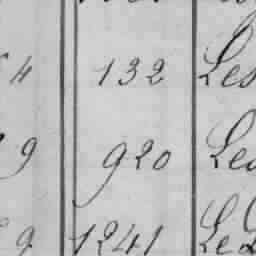 4 132 Les
9 920 Les
9 1241 Le